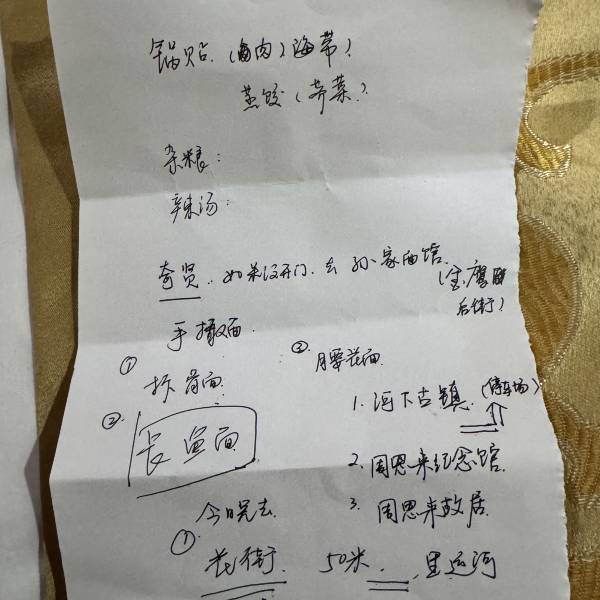 锅贴 (卤肉) 海带)
蒸饺 (荠菜)
杂粮:
辣汤:
奇贤.. 如果没开门. 去 孙家面馆.
(金鹰
后街)
手擀面
① ③ 腰花面
1. 河下古镇 (停车场)
② 长鱼面
2. 周恩来纪念馆.
今晚去 3. 周恩来故居
① 花街. 50米 里运河